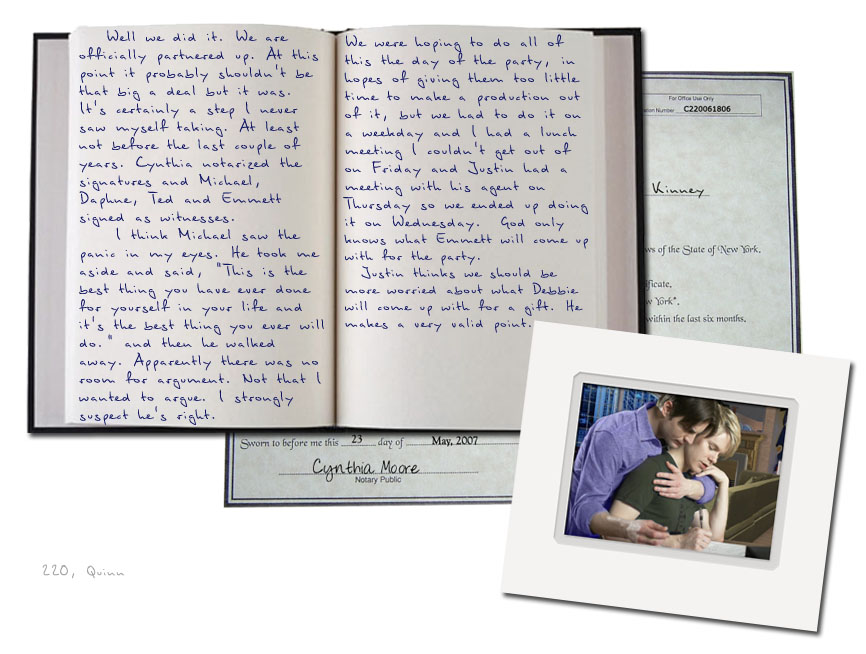 Well we did it. We are
officially partnered up. At this
point it probably shouldn't be
that big a deal but it was.
It's certainly a step I never
saw myself taking. At least
not before the last couple of
years. Cynthia notarized the
signatures and Michael,
Daphne, Ted and Emmett
signed as witnesses.
I think Michael saw the
panic in my eyes. He took me
aside and said, "This is the
best thing you have ever done
for yourself in your life and
it's the best thing you ever will
do." and then he walked
away. Apparently there was no
room for argument. Not that I
wanted to argue. I strongly
suspect he's right.
We were hoping to do all of
this the day of the party, in
hopes of giving them too little
time to make a production out
of it, but we had to do it on
a weekday and I had a lunch
meeting I couldn't get out of
on Friday and Justin had a
meeting with his agent on
Thursday so we ended up doing
it on Wednesday. God only
knows what Emmett will come up
with for the party.
Justin thinks we should be
more worried about what Debbie
will come up with for a gift. He
makes a very valid point.
For Office Use Only
Number C220061806
Kinney
of the State of New York.
York".
within the last six months.
Sworn to before me this 23 day of May, 2007
Cynthia Moore
Notary Public
220, Quinn